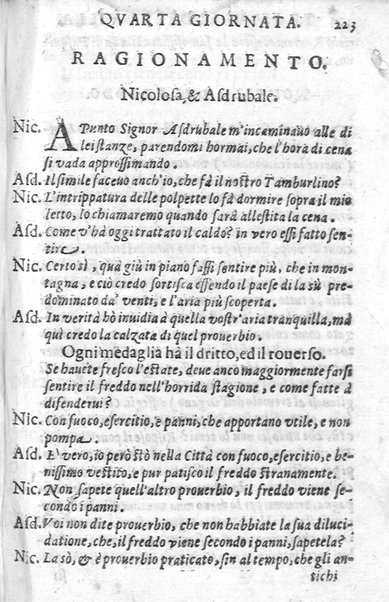 QVARTA GIORNATA. 223
RAGIONAMENTO.
Nicolosa, & Asdrubale.
Nic. A Punto Signor Asdrubale m'incaminauo alle di
lei stanze, parendomi hormai, che l'hora di cena
si vada approssimando.
Asd. Il simile faceuo anch'io, che fà il nostro Tamburlino?
Nic. L'intrippatura delle polpette lo fà dormire sopra il mio
letto, lo chiamaremo quando sarà allestita la cena.
Asd. Come v'hà oggi trattato il caldo? in vero essi fatto sen-
tire.
Nic. Certo sì, quà giù in piano fassi sentire più, che in mon-
tagna, e ciò credo sortisca essendo il paese di la sù pre-
dominato da' venti, e l'aria più scoperta.
Asd. In verità hò inuidia à quella vostr'aria tranquilla, mà
quì credo la calzata di quel prouerbio.
Ogni medaglia hà il dritto, ed il rouerso.
Se hauete fresco l'estate, deue anco maggiormente farsi
sentire il freddo nell'horrida stagione, e come fatte à
difenderui?
Nic. Con fuoco, esercitio, e panni, che apportano vtile, e non
pompa.
Asd. E' vero, io però stò nella Città con fuoco, esercitio, e be-
nissimo vestito, e pur patisco il freddo stranamente.
Nic. Non sapete quell'altro prouerbio, il freddo viene se-
condo i panni.
Asd. Voi non dite prouerbio, che non habbiate la sua diluci-
datione, che, il freddo viene secondo i panni, sapetela?
Nic. La sò, & è prouerbio praticato, sin al tempo, che gli an-
tichi